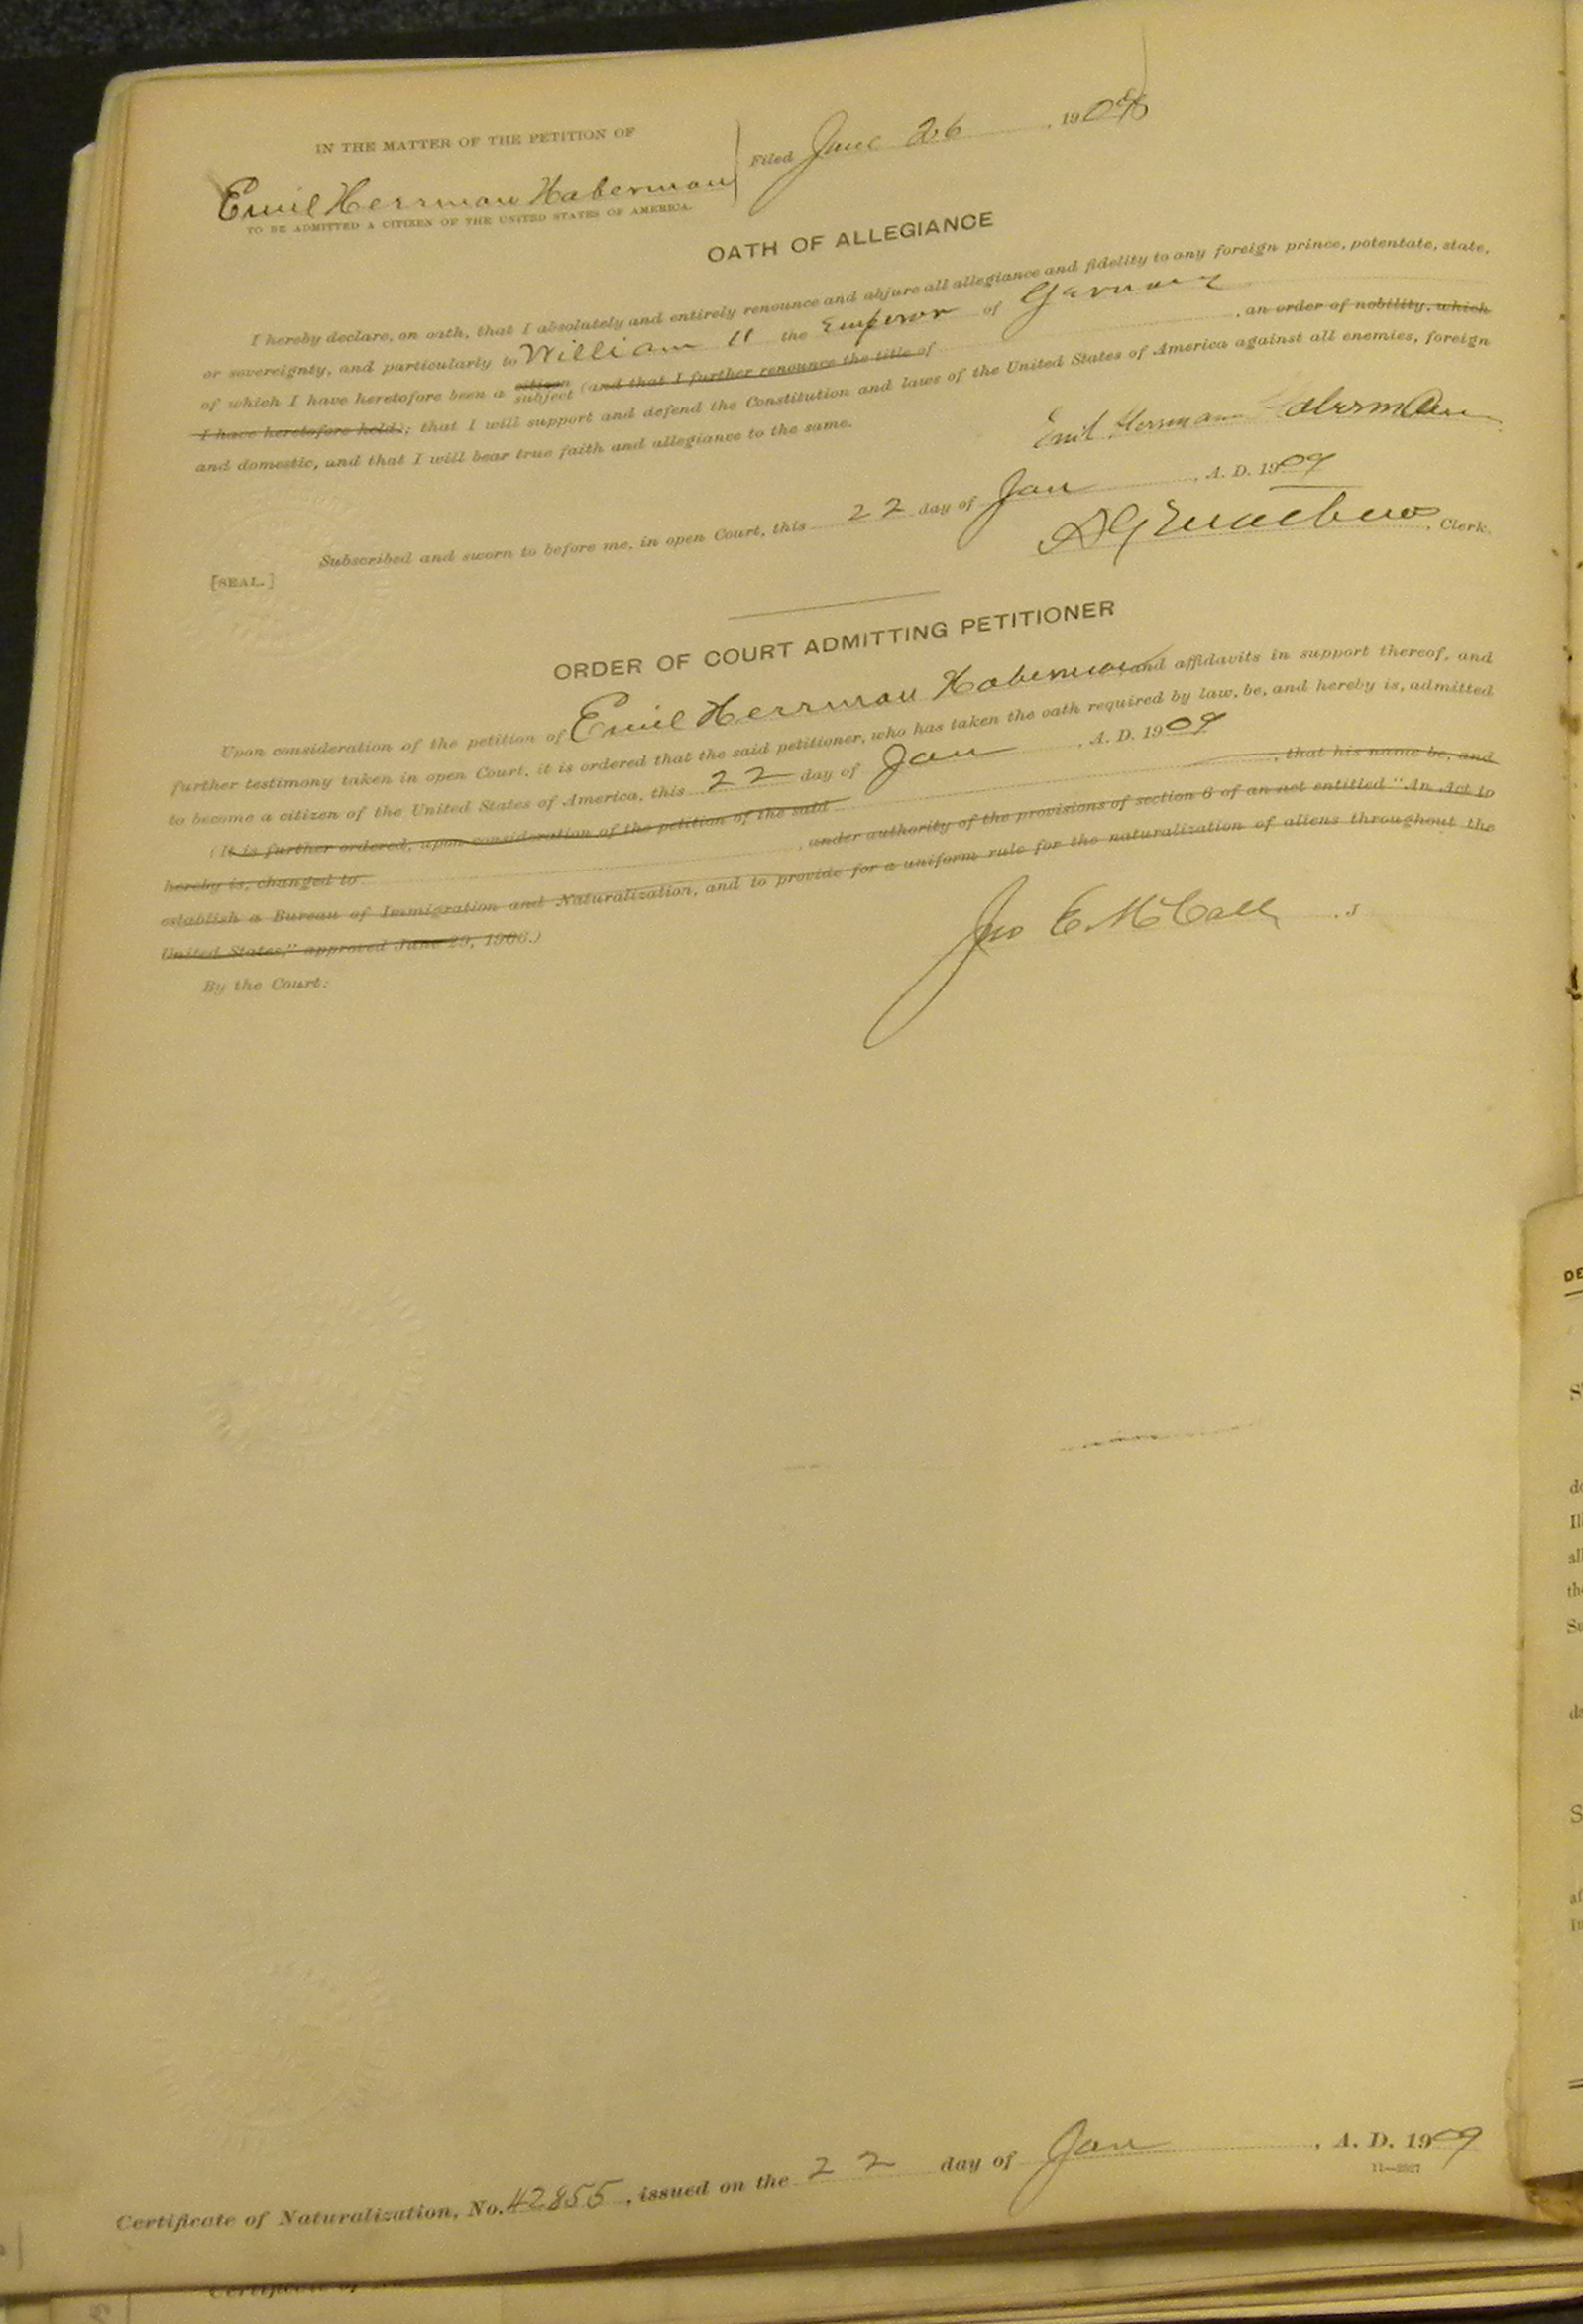 IN THE MATTER OF THE PETITION OF
Emil Herrman Haberman
TO BE ADMITTED A CITIZEN OF THE UNITED STATES OF AMERICA.
Filed June 26, 190
OATH OF ALLEGIANCE
I hereby declare, on oath, that I absolutely and entirely renounce and abjure all allegiance and fidelity to any foreign prince, potentate, state,
or sovereignty, and particularly to William II the Emperor of Germany
of which I have heretofore been a citizen subject (and that I further renounce the title of , an order of nobility, which
I have heretofore held); that I will support and defend the Constitution and laws of the United States of America against all enemies, foreign
and domestic, and that I will bear true faith and allegiance to the same.
Emil Herrman Haberman
Subscribed and sworn to before me, in open Court, this 22 day of Jan, A. D. 1909
[SEAL.]
, Clerk.
ORDER OF COURT ADMITTING PETITIONER
Upon consideration of the petition of Emil Herrman Haberman and affidavits in support thereof, and
further testimony taken in open Court, it is ordered that the said petitioner, who has taken the oath required by law, be, and hereby is, admitted
to become a citizen of the United States of America, this 22 day of Jan, A. D. 1909
(It is further ordered, upon consideration of the petition of the said , that his name be, and
hereby is, changed to , under authority of the provisions of section 6 of an act entitled "An Act to
establish a Bureau of Immigration and Naturalization, and to provide for a uniform rule for the naturalization of aliens throughout the
United States," approved June 29, 1906.)
By the Court:
Jno E McCall, J
Certificate of Naturalization, No. 42855, issued on the 22 day of Jan, A. D. 1909
11—2827